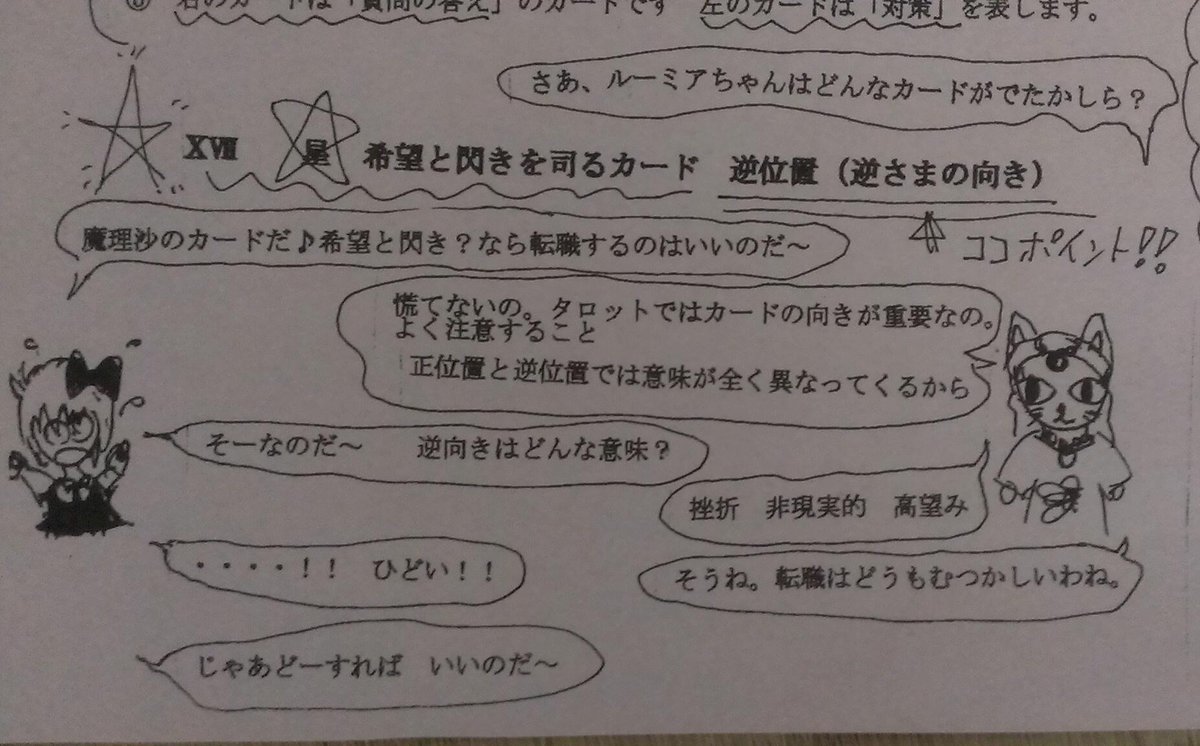 右のカードは「質問の答え」のカードです 左のカードは「対策」を表します。
さあ、ルーミアちゃんはどんなカードがでたかしら？
XVII 星 希望と閃きを司るカード 逆位置（逆さまの向き）
ココポイント!!
魔理沙のカードだ♪希望と閃き？なら転職するのはいいのだ～
慌てないの。タロットではカードの向きが重要なの。
よく注意すること
正位置と逆位置では意味が全く異なってくるから
そーなのだ～ 逆向きはどんな意味？
挫折 非現実的 高望み
・・・・！！ ひどい！！
そうね。転職はどうもむつかしいわね。
じゃあどーすれば いいのだ～